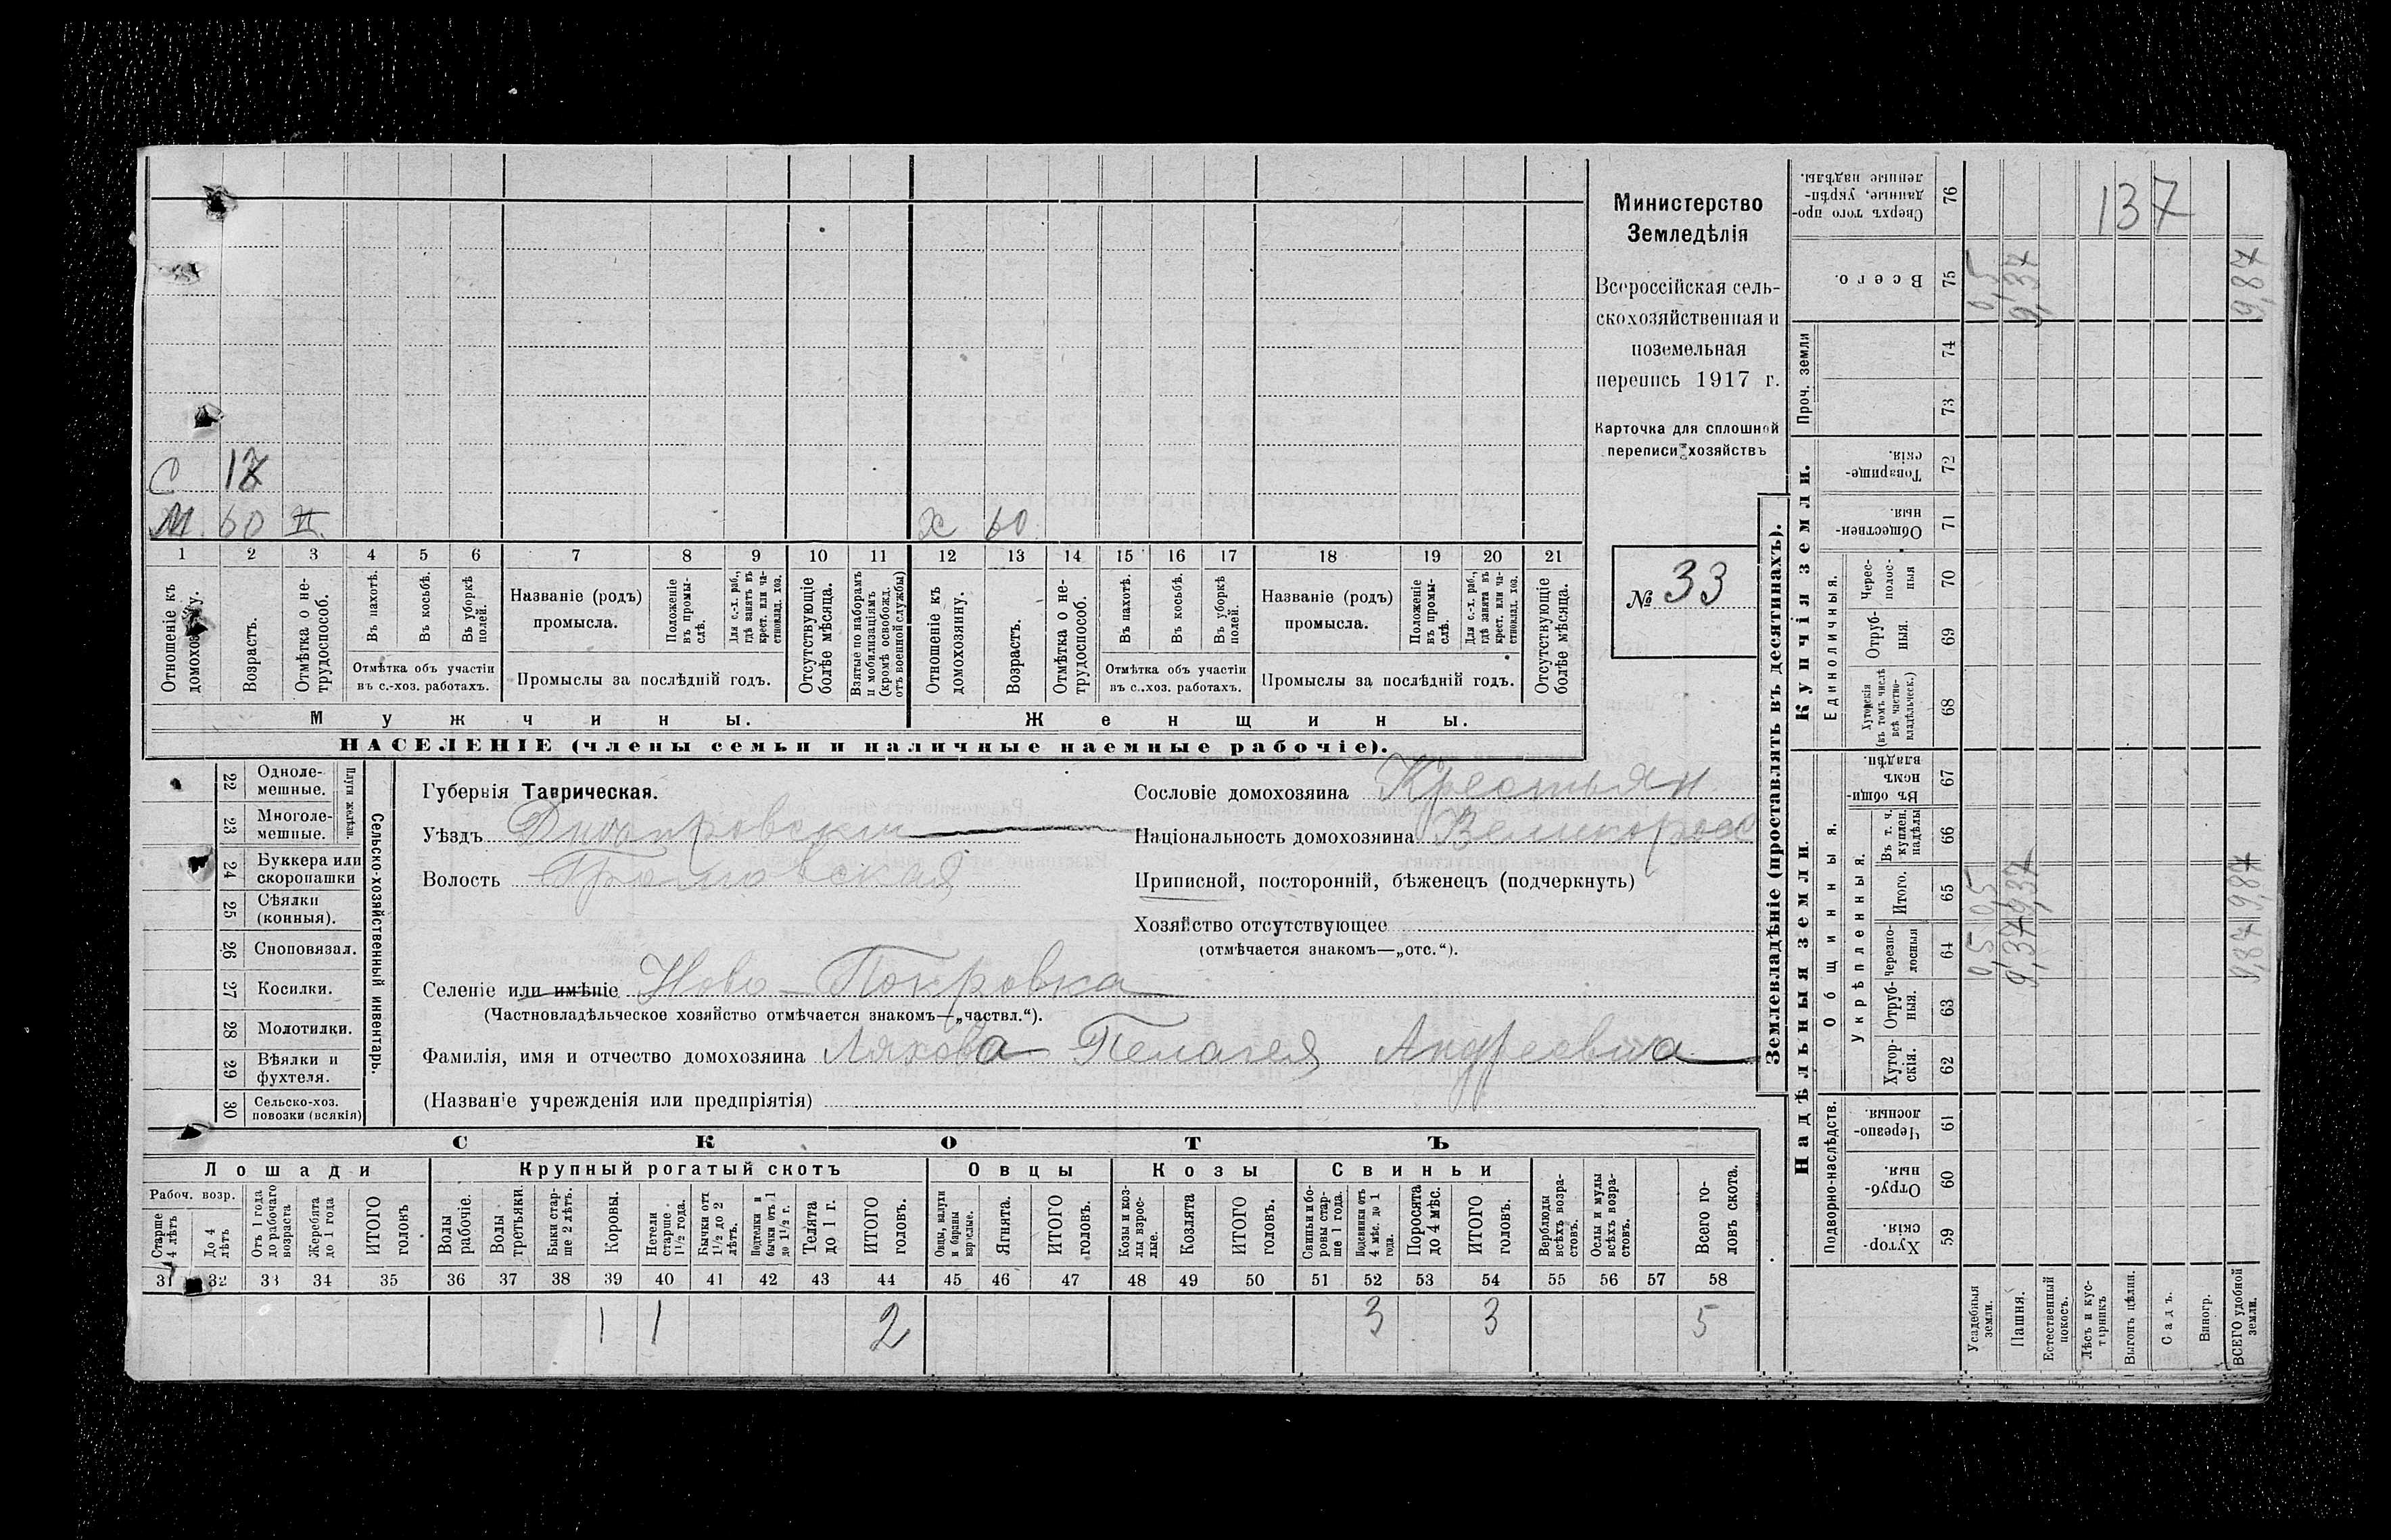 137
Министерство
Земледѣлія
Всероссійская сель-
скохозяйственная и
поземельная
перепись 1917 г.
Карточка для сплошной
переписи хозяйствъ
№ 33
С 17
М. 60 II.
Х 60
1 2 3 4 5 6 7 8 9 10 11 12 13 14 15 16 17 18 19 20 21
Отношеніе къ домохозяину.
Возрастъ.
Отмѣтка о не-трудоспособ.
Въ пахотѣ.
Въ косьбѣ.
Въ уборкѣ полей.
Отмѣтка объ участіи
въ с.-хоз. работахъ.
Названіе (родъ)
промысла.
Положеніе въ промы-слѣ.
Для с.-х. раб., гдѣ занятъ въ крест. или ча-стновлад. хоз.
Промыслы за послѣдній годъ.
Отсутствующіе болѣе мѣсяца.
Взятые по наборамъ и мобилизаціямъ (кромѣ освобожд. отъ военной службы)
Отношеніе къ домохозяину.
Возрастъ.
Отмѣтка о не-трудоспособ.
Въ пахотѣ.
Въ косьбѣ.
Въ уборкѣ полей.
Отмѣтка объ участіи
въ с..хоз. работахъ.
Названіе (родъ)
промысла.
Положеніе въ промы-слѣ.
Для с.-х. раб., гдѣ занята въ крест. или ча-стновлад. хоз.
Промыслы за послѣдній годъ.
Отсутствующіе болѣе мѣсяца.
Мужчины. Женщины.
НАСЕЛЕНІЕ (члены семьи и наличные наемные рабочіе).
Сельско-хозяйственный инвентарь.
Плуги желѣзн.
22 Одноле-мешные.
23 Многоле-мешные.
24 Буккера или скоропашки
25 Сѣялки (конныя).
26 Сноповязал.
27 Косилки.
28 Молотилки.
29 Вѣялки и фухтеля.
30 Сельско-хоз. повозки (всякія)
Губернія Таврическая.
Уѣздъ Днѣпровскій
Волость
Селеніе или имѣніе Ново-Покровка
(Частновладѣльческое хозяйство отмѣчается знакомъ—„частвл.“).
Фамилія, имя и отчество домохозяина Ляхова Пелагея Андреевна
(Названіе учрежденія или предпріятія)
Сословіе домохозяина Крестьян
Національность домохозяина Великоросс
Приписной, посторонній, бѣженецъ (подчеркнуть)
Хозяйство отсутствующее
(отмѣчается знакомъ—„отс.“).
СКОТЪ
Лошади Крупный рогатый скотъ Овцы Козы Свиньи
Рабоч. возр.
Старше 4 лѣтъ
До 4 лѣтъ
Отъ 1 года до рабочаго возраста
Жеребята до 1 года
ИТОГО головъ
Волы рабочіе.
Волы третьяки.
Быки стар-ше 2 лѣтъ.
Коровы.
Нетели старше 1½ года.
Бычки отъ 1½ до 2 лѣтъ.
Подтелки и бычки отъ 1 до 1½ г.
Телята до 1 г.
ИТОГО головъ.
Овцы, валухи и бараны взрослые.
Ягнята.
ИТОГО головъ.
Козы и коз-лы взрос-лые.
Козлята
ИТОГО головъ.
Свиньи и бо-ровы стар-ше 1 года.
Подсвинки отъ 4 мѣс. до 1 года.
Поросята до 4 мѣс.
ИТОГО головъ.
Верблюды всѣхъ возра-стовъ.
Ослы и мулы всѣхъ возра-стовъ.
Всего го-ловъ скота.
31 32 33 34 35 36 37 38 39 40 41 42 43 44 45 46 47 48 49 50 51 52 53 54 55 56 57 58
1 1 2 3 3 5
Землевладѣніе (проставлять въ десятинахъ).
Надѣльныя земли. Купчія земли. Проч. земли
Подворно-наслѣдств. Общинныя. Единоличныя.
Укрѣпленныя.
Хутор-скія. 59
Отруб-ныя. 60
Черезпо-лосныя. 61
Хутор-скія. 62
Отруб-ныя. 63
Черезпо-лосныя 64
Итого. 65
Въ т. ч. куплен. надѣлы 66
Въ общи-номъ владѣн. 67
Хуторскія (въ томъ числѣ всѣ частно-владѣльческ.) 68
Отруб-ныя. 69
Черес-полос-ныя 70
Обществен-ныя. 71
Товарище-скія. 72
73
74
Всего. 75
Сверхъ того про-данные, укрѣп-ленные надѣлы. 76
Усадебныя земли. 0,5 0,5 0,5
Пашня. 9,37 9,37 9,37
Естественный покосъ.
Лѣсъ и кус-тарникъ
Выгонъ цѣлин.
Садъ.
Виногр.
ВСЕГО удобной земли. 9,87 9,87 9,87